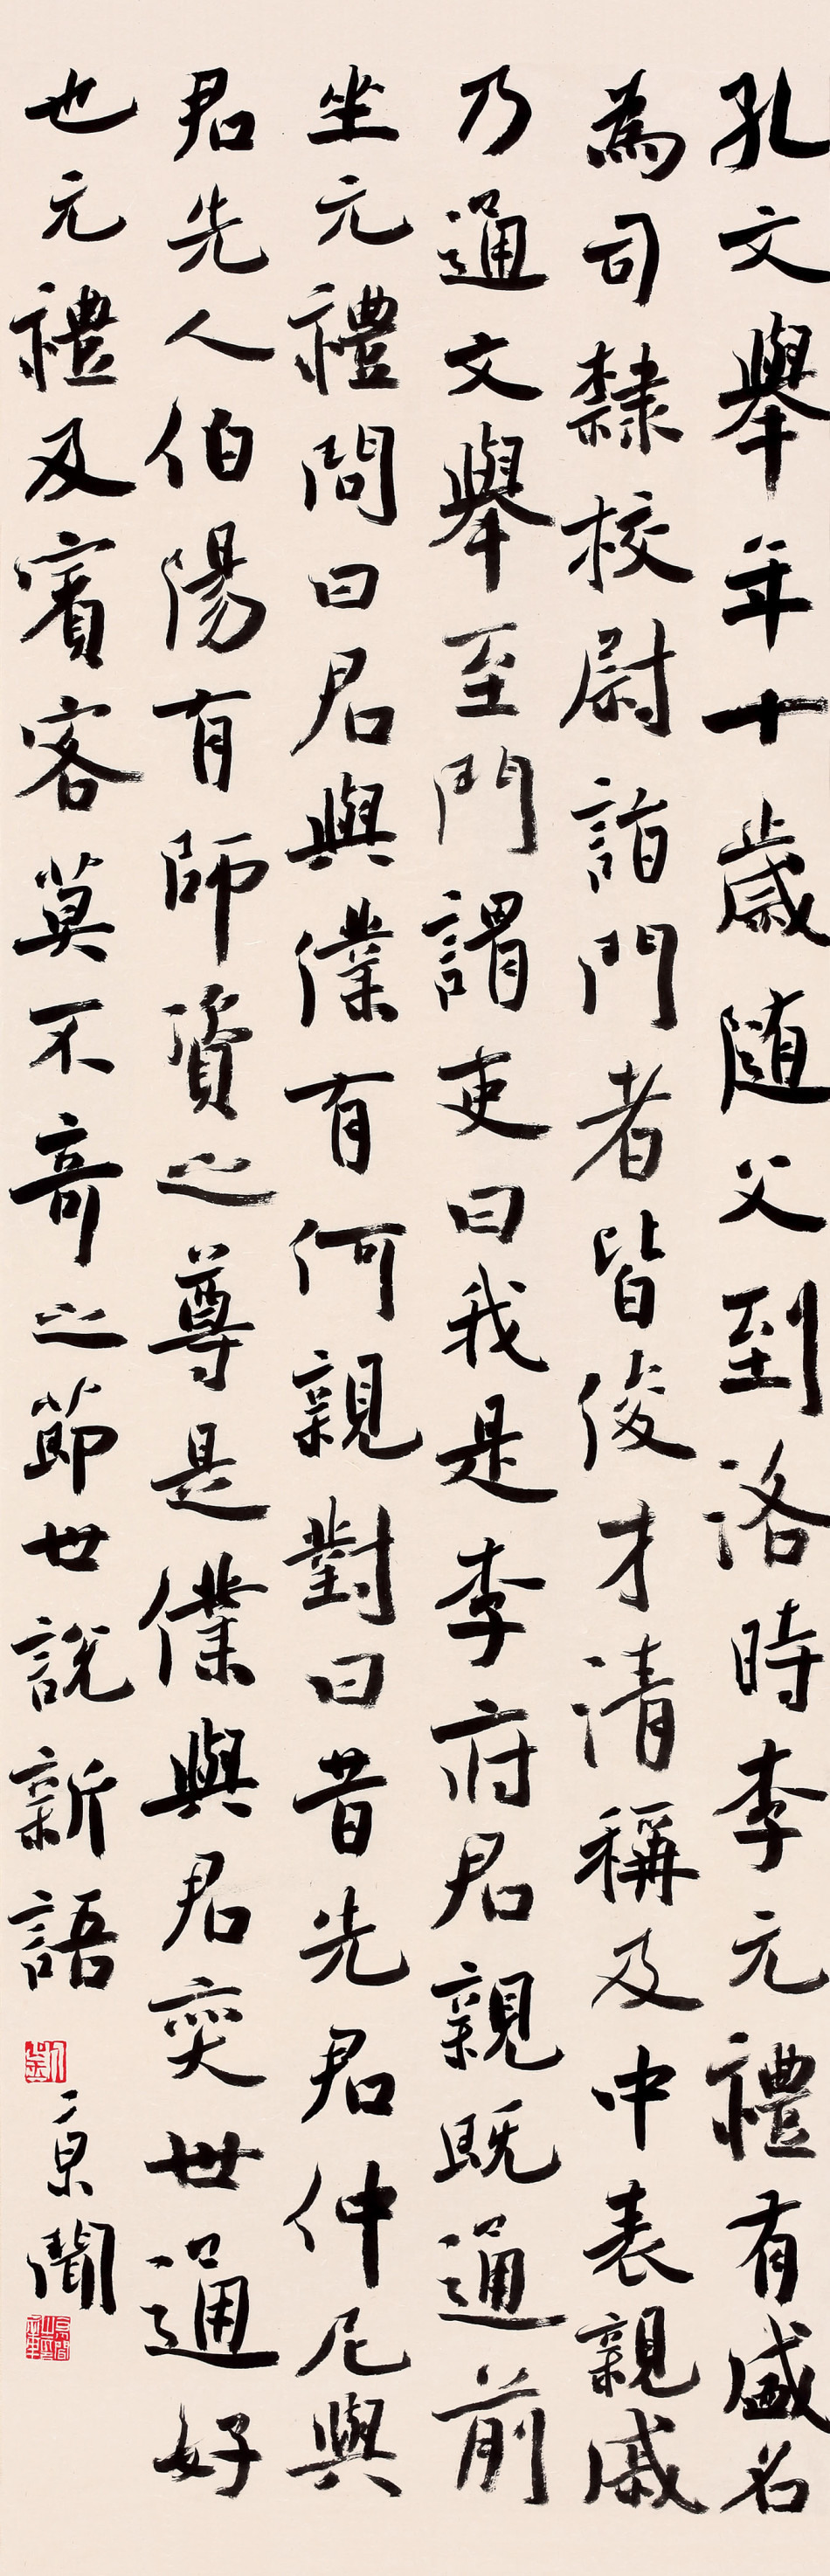 孔文舉年十歲随父到洛時李元禮有盛名
為司隸校尉詣門者皆俊才清稱及中表親戚
乃通文舉至門謂吏曰我是李府君親既通前
坐元禮問曰君與僕有何親對曰昔先君仲尼與
君先人伯陽有師資之尊是僕與君奕世通好
也元禮及賓客莫不奇之節世說新語
景聞